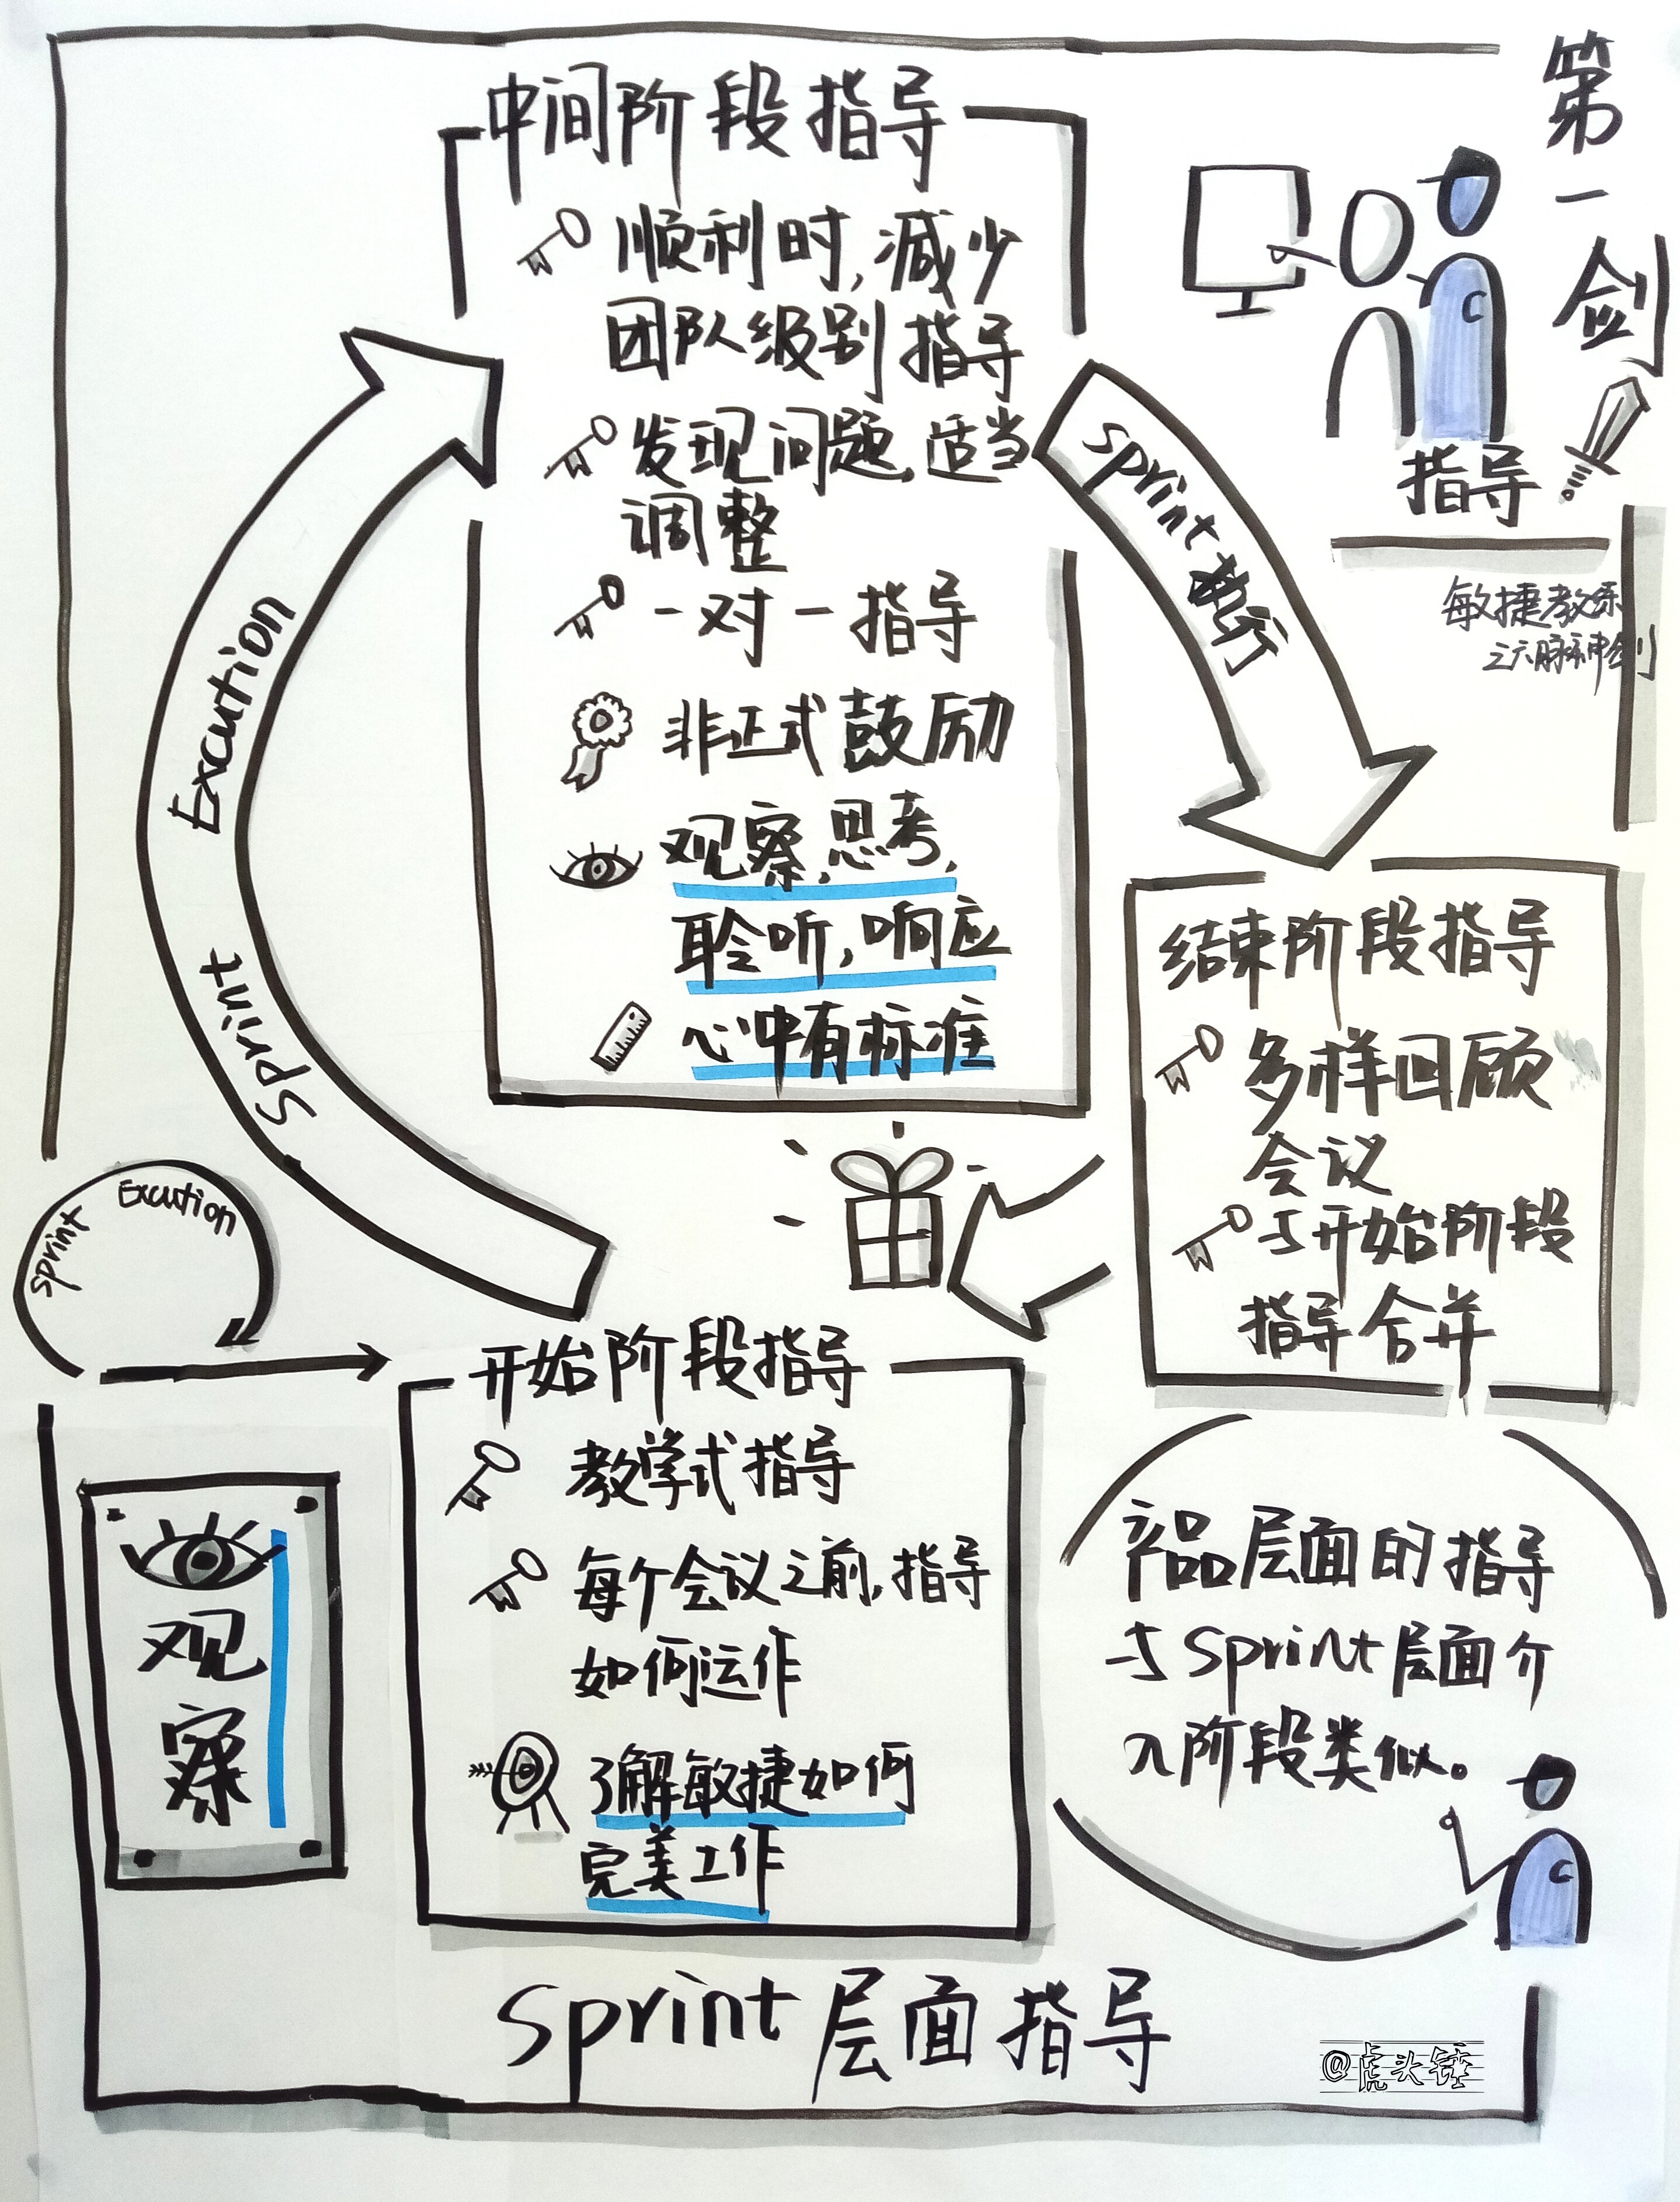 第一剑
指导
敏捷教练
之六脉神剑
中间阶段指导
顺利时,减少
团队级别指导
发现问题,适当
调整
一对一指导
非正式鼓励
观察,思考,
聆听,响应
心中有标准
Sprint Excution
Sprint 执行
结束阶段指导
多样回顾
会议
与开始阶段
指导合并
Sprint Excution
开始阶段指导
教学式指导
每个会议之前,指导
如何运作
了解敏捷如何
完美工作
观察
产品层面的指导
与Sprint层面介
入阶段类似。
C
C
Sprint 层面指导
@虎头锤